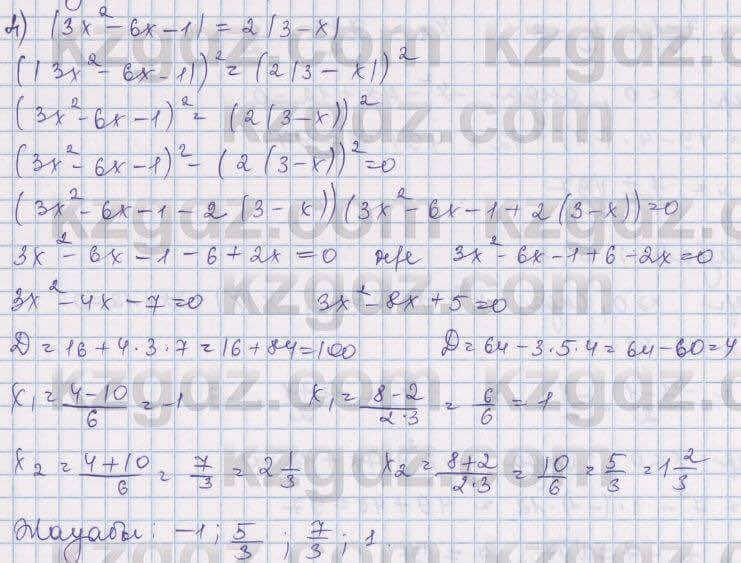 4) |3x² - 6x - 1| = 2|3 - x|
(|3x² - 6x - 1|)² = (2|3 - x|)²
(3x² - 6x - 1)² = (2(3 - x))²
(3x² - 6x - 1)² - (2(3 - x))² = 0
(3x² - 6x - 1 - 2(3 - x))(3x² - 6x - 1 + 2(3 - x)) = 0
3x² - 6x - 1 - 6 + 2x = 0 және 3x² - 6x - 1 + 6 - 2x = 0
3x² - 4x - 7 = 0 3x² - 8x + 5 = 0
D = 16 + 4·3·7 = 16 + 84 = 100 D = 64 - 3·5·4 = 64 - 60 = 4
x₁ = (4 - 10)/6 = -1 x₁ = (8 - 2)/(2·3) = 6/6 = 1
x₂ = (4 + 10)/6 = 7/3 = 2 1/3 x₂ = (8 + 2)/(2·3) = 10/6 = 5/3 = 1 2/3
Жауабы: -1; 5/3; 7/3; 1.
kzgdz.com